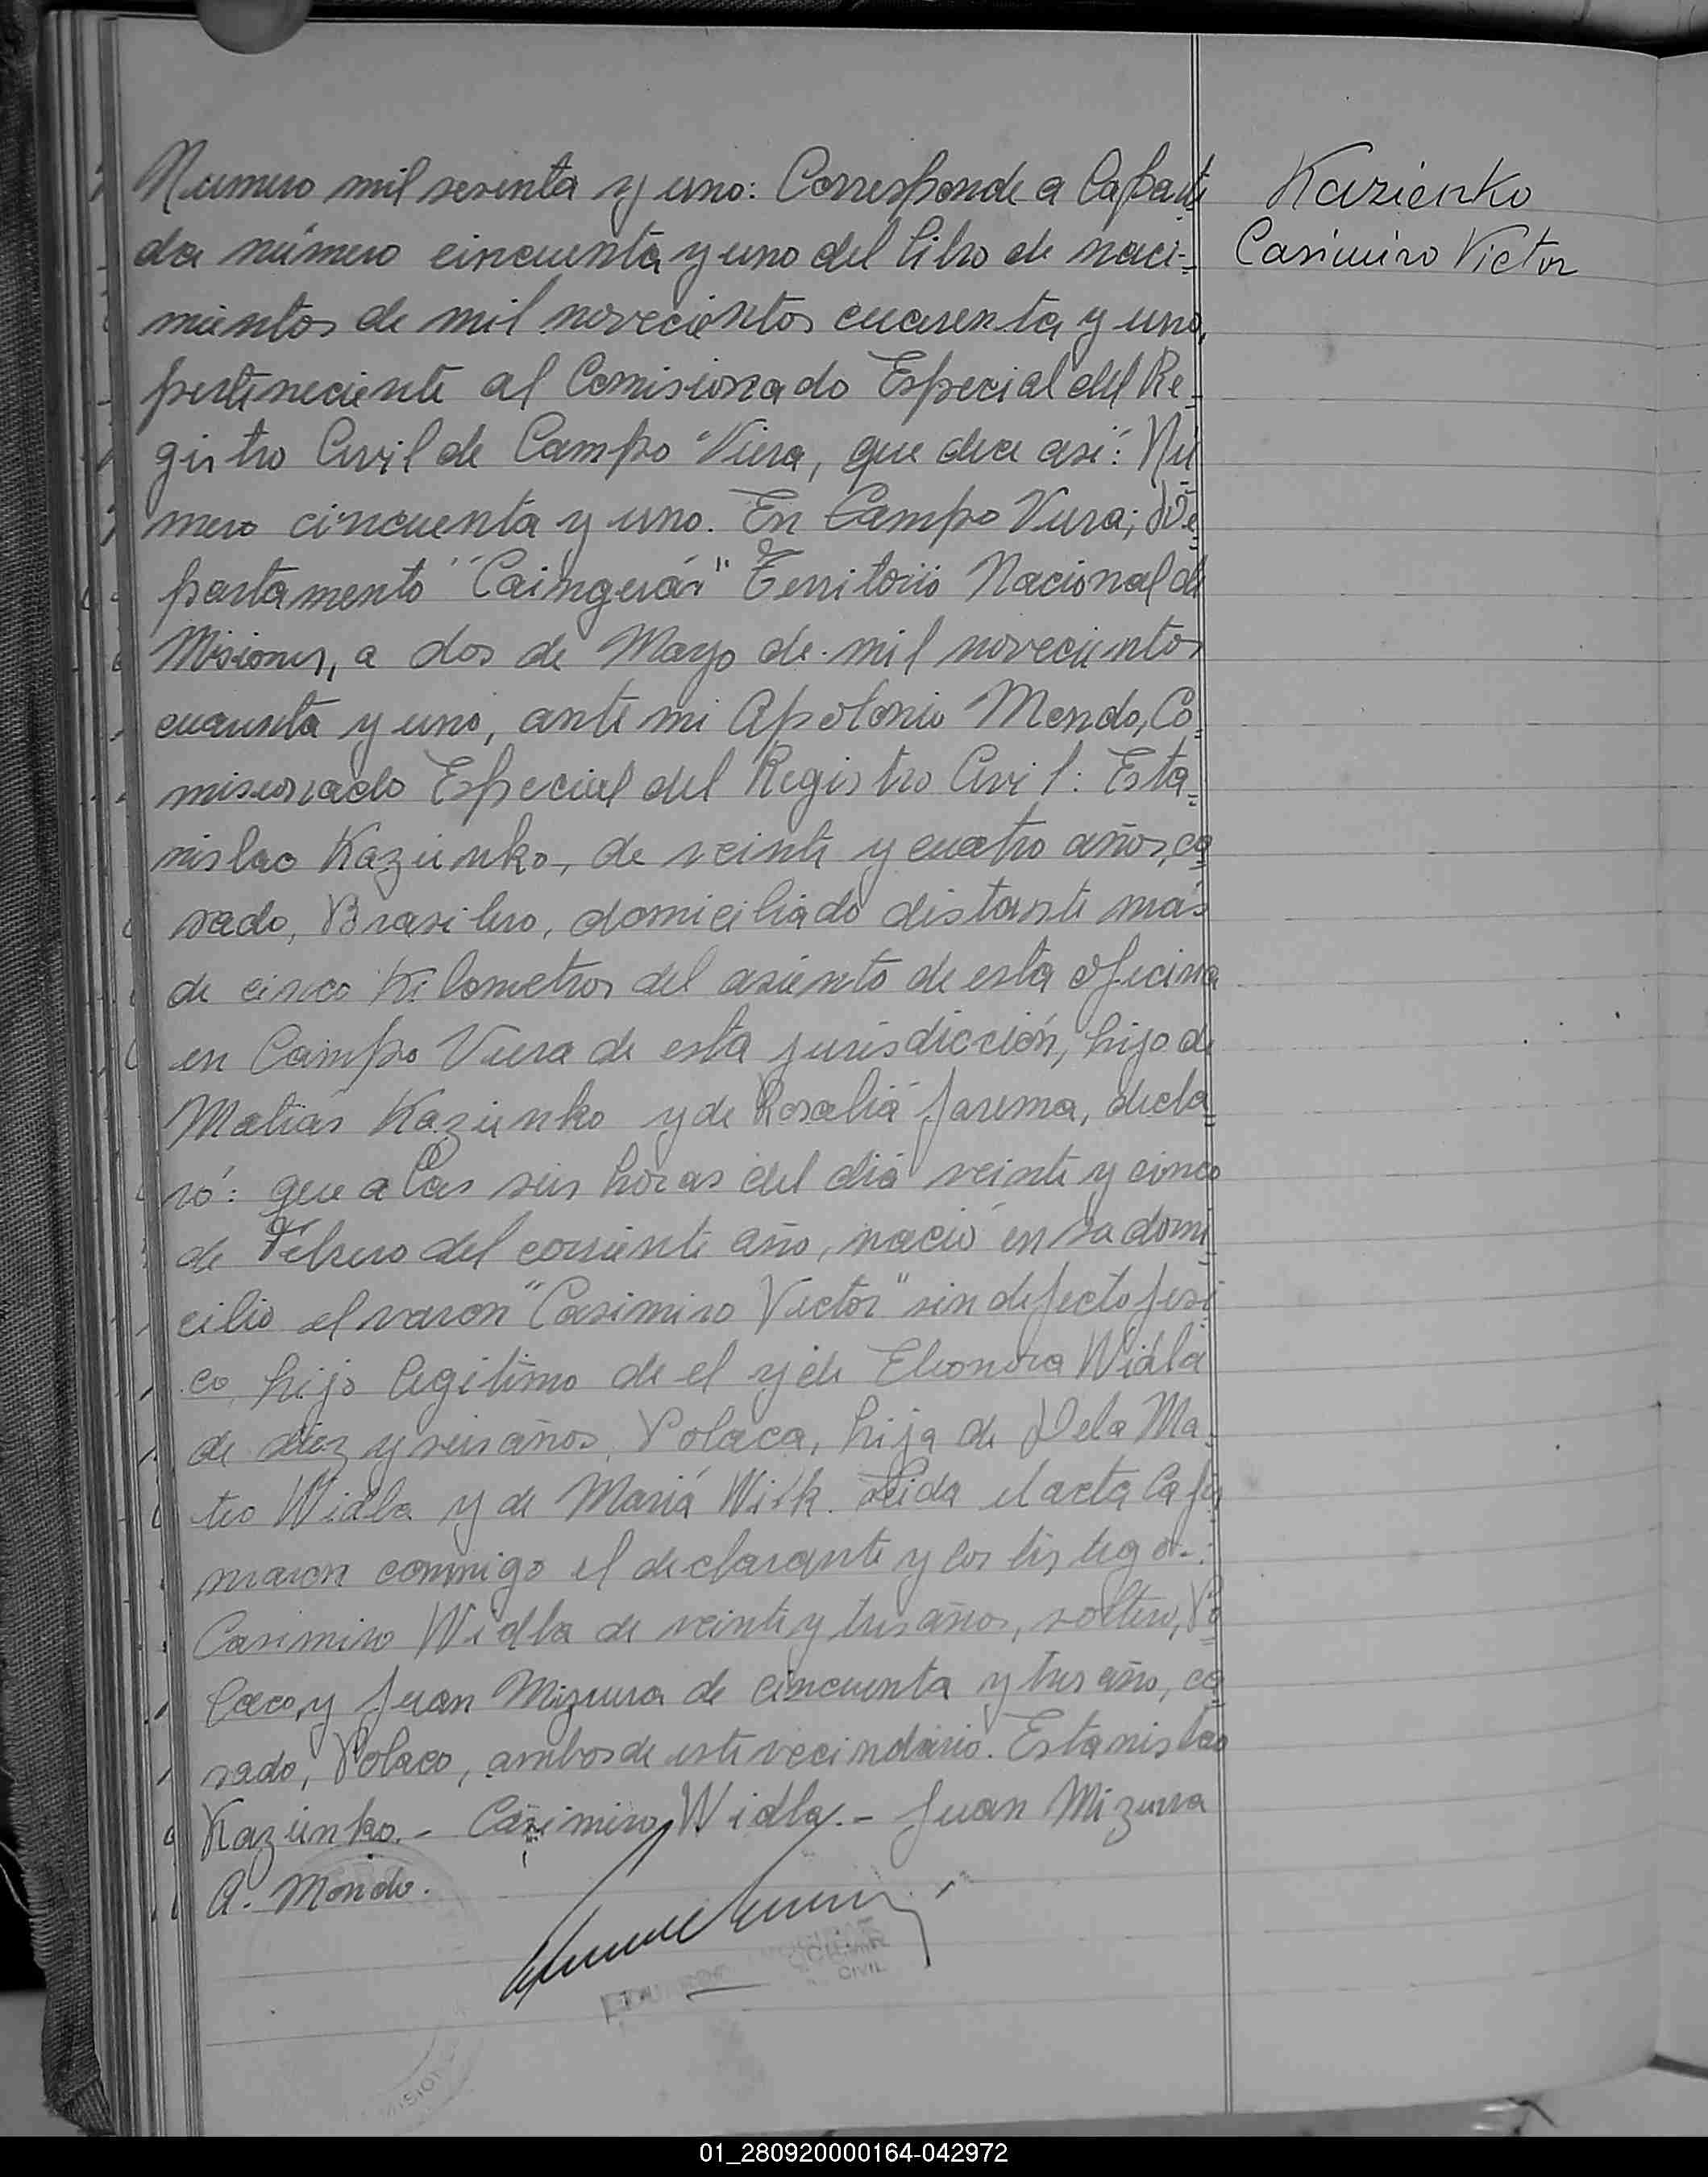 Numero mil sesenta y uno: Corresponde a la parti
da número cincuenta y uno del libro de naci-
mientos de mil novecientos cuarenta y uno,
perteneciente al Comisionado Especial del Re-
gistro Civil de Campo Viera, que dice así: Nú
mero cincuenta y uno. En Campo Viera; De
partamento "Cainguás" Territorio Nacional de
Misiones, a dos de Mayo de mil novecientos
cuarenta y uno, ante mi Apolonio Mendo, Co-
misionado Especial del Registro Civil: Esta-
nislao Kazienko, de veinte y cuatro años, ca
sado, Brasilero, domiciliado distante más
de cinco Kilometros del asiento de esta oficina
en Campo Viera de esta jurisdicción, hijo de
Matias Kazienko y de Rosalia Jarema, decla-
ró: que a las seis horas del día veinte y cinco
de Febrero del corriente año, nació en su domi
cilio el varon "Casimiro Victor" sin defecto fisi
co, hijo legitimo de el y de Eleonora Widla
de diez y seis años, Polaca, hija de Ma-
teo Widla y de Maria Wilk. Leida el acta la fir
maron conmigo el declarante y los testigo-:
Casimiro Widla de veinte y tres años, soltero, Po
laco, y Juan Mizura de cincuenta y tres año, ca
sado, Polaco, ambos de este vecindario. Estanislao
Kazienko.- Casimiro Widla.- Juan Mizura
A. Mendo.
Kazienko
Casimiro Victor
CIVIL
01_280920000164-042972